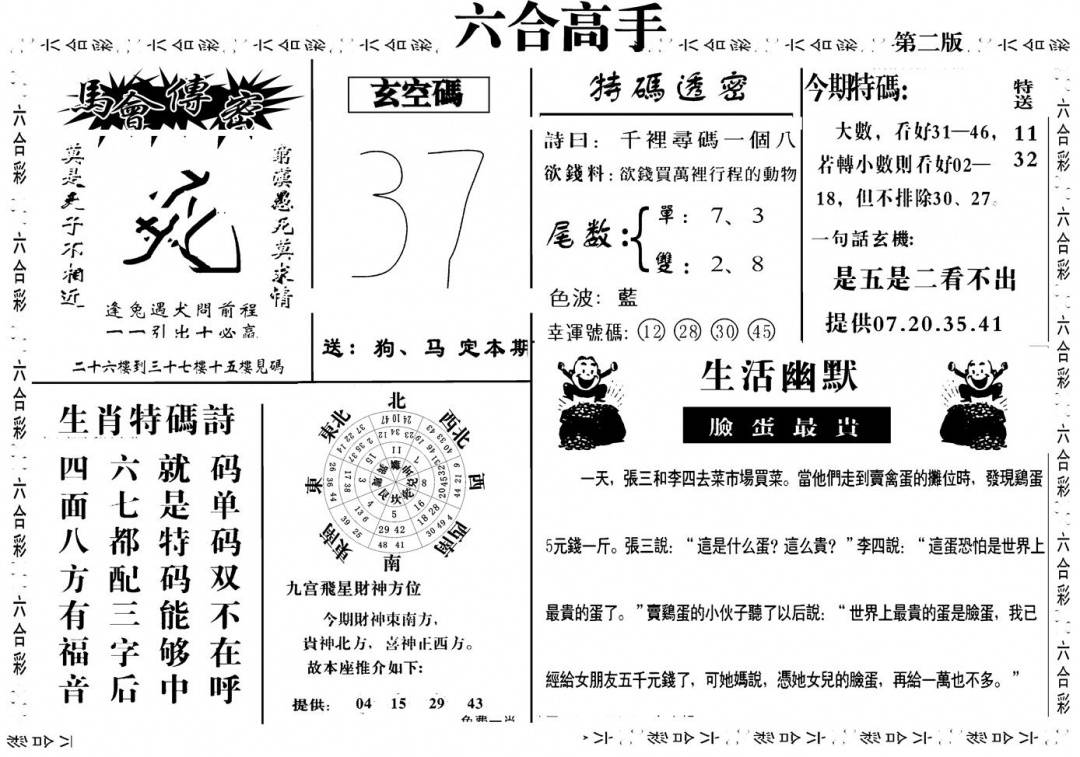 六合高手
第二版
馬會傳密
莫是夫子不相近
窮漢愚死莫求情
死
逢兔遇犬問前程
一一引出十必贏
二十六樓到三十七樓十五樓見碼
玄空碼
37
送：狗、马 定本期
特碼透密
詩曰：千裡尋碼一個八
欲錢料：欲錢買萬裡行程的動物
尾数：
單：7、3
雙：2、8
色波：藍
幸運號碼：12 28 30 45
今期特碼:
特送
11
32
大數，看好31—46，
若轉小數則看好02—
18，但不排除30、27。
一句話玄機:
是五是二看不出
提供07.20.35.41
生肖特碼詩
四面八方有福音
六七都配三字后
就是特码能够中
码单码双不在呼
北
西北
西
西南
南
東南
東
東北
九宫飛星財神方位
今期財神東南方，
貴神北方，喜神正西方。
故本座推介如下:
提供: 04 15 29 43
生活幽默
臉蛋最貴
一天，張三和李四去菜市場買菜。當他們走到賣禽蛋的攤位時，發現鷄蛋
5元錢一斤。張三說：“這是什么蛋？這么貴？”李四說：“這蛋恐怕是世界上
最貴的蛋了。”賣鷄蛋的小伙子聽了以后說：“世界上最貴的蛋是臉蛋，我已
經給女朋友五千元錢了，可她媽說，憑她女兒的臉蛋，再給一萬也不多。”
六合彩
六合彩
六合彩
六合彩
六合彩
六合彩
六合彩
六合彩
六合彩
六合彩